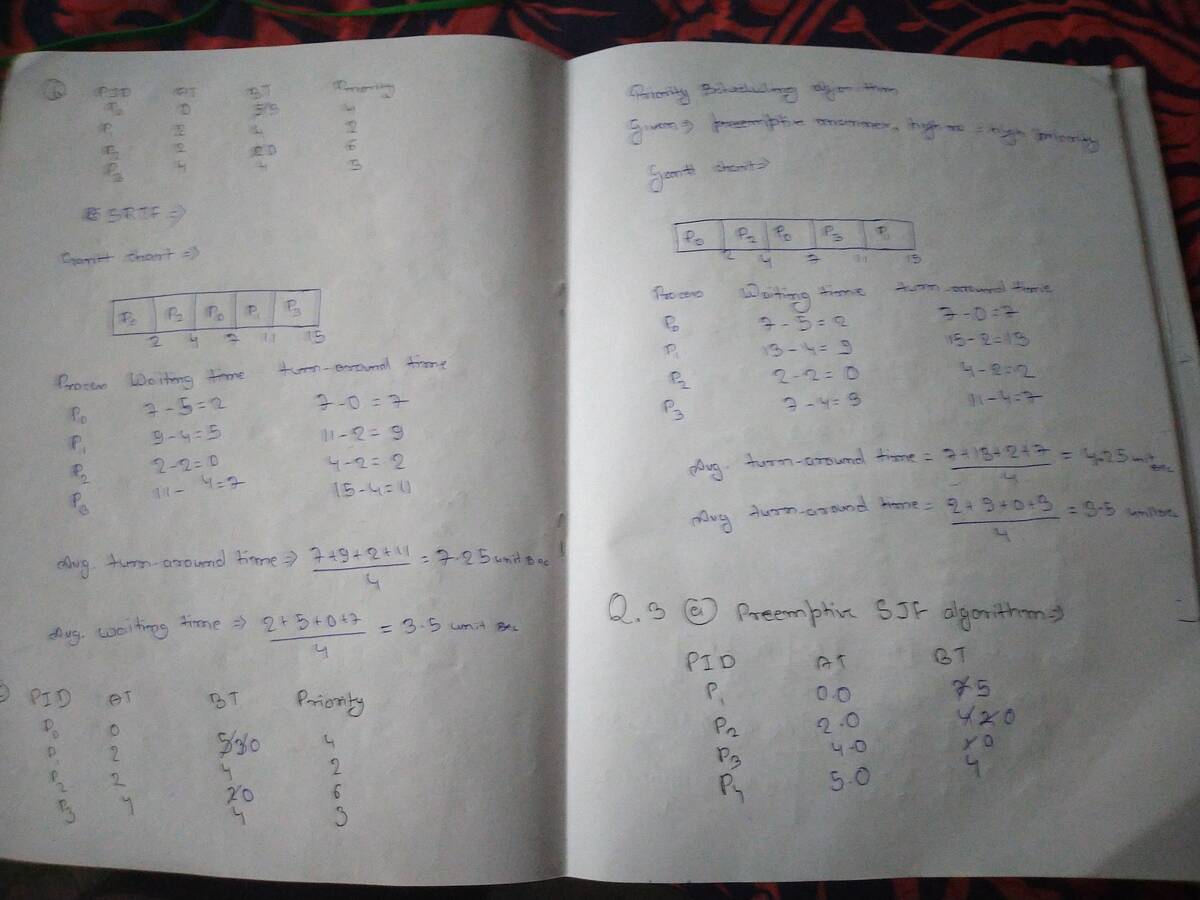 PID AT BT Priority
P0 0 5 3 4
P1 2 4 2
P2 2 2 0 6
P3 4 4 3
SRTF ⇒
Gantt chart ⇒
P0 P2 P0 P1 P3
2 4 7 11 15
Process Waiting time turn-around time
P0 7-5=2 7-0=7
P1 9-4=5 11-2=9
P2 2-2=0 4-2=2
P3 11-4=7 15-4=11
Avg. turn-around time ⇒ 7+9+2+11 / 4 = 7.25 unit sec
Avg. waiting time ⇒ 2+5+0+7 / 4 = 3.5 unit sec
PID AT BT Priority
P0 0 5 3 0 4
P1 2 4 2
P2 2 2 0 6
P3 4 4 3
Priority Scheduling algorithm
Given ⇒ preemptive manner, high no = high priority
Gantt chart ⇒
P0 P2 P0 P3 P1
2 4 7 11 15
Process Waiting time turn-around time
P0 7-5=2 7-0=7
P1 13-4=9 15-2=13
P2 2-2=0 4-2=2
P3 7-4=3 11-4=7
Avg. turn-around time = 7+13+2+7 / 4 = 4.25 unit sec
Avg. turn-around time = 2+9+0+3 / 4 = 3.5 unit sec
Q.3 (c) Preemptive SJF algorithm ⇒
PID AT BT
P1 0.0 7 5
P2 2.0 4 2 0
P3 4.0 1 0
P4 5.0 4